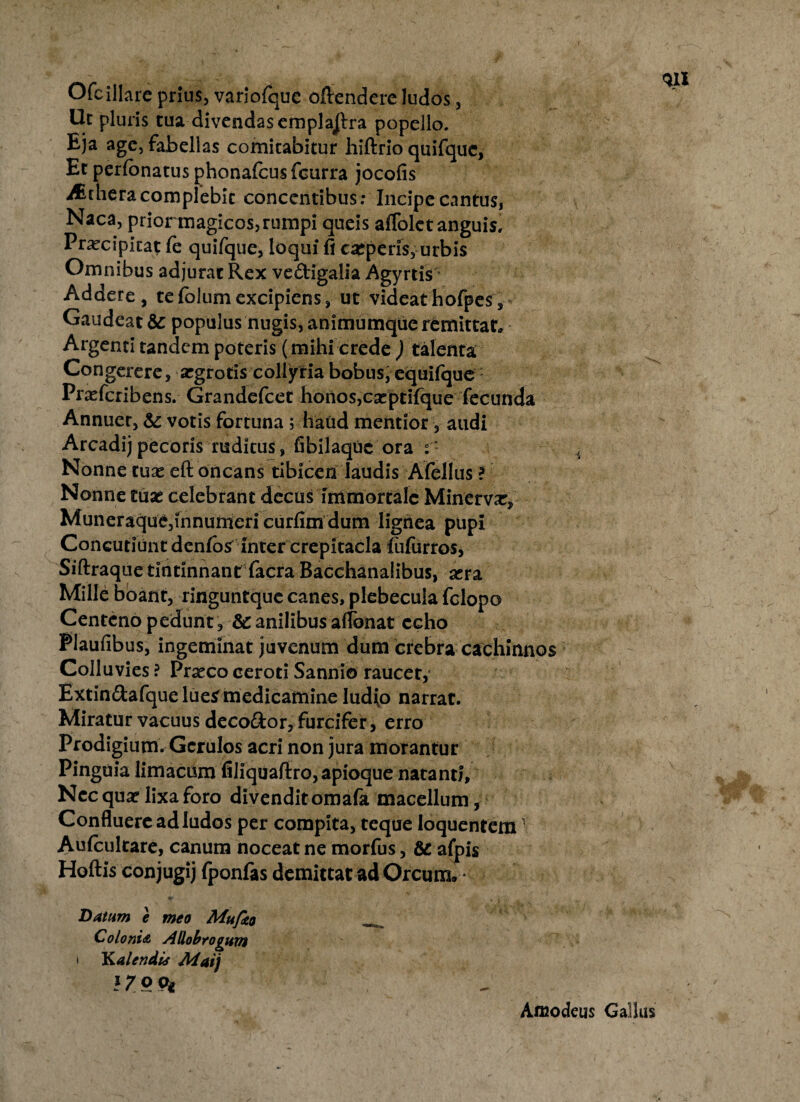 Oſcillare prius, varioſque oſtendere ludos,
Ut pluris tua divendas emplaſtra popello.
Eja age, fabellas comitabitur hiſtrio quiſque,
Et perſonatus phonaſcus ſcurra jocoſis
Æthera complebit concentibus: Incipe cantus,
Naca, prior magicos, rumpi queis aſſolet anguis.
Præcipitat ſe quiſque, loqui ſi cæperis, urbis
Omnibus adjurat Rex vectigalia Agyrtis
Addere, te ſolum excipiens, ut videat hoſpes,
Gaudeat & populus nugis, animumque remittat.
Argenti tandem poteris (mihi crede) talenta
Congerere, ægrotis collyria bobus, equiſque
Præſcribens. Grandeſcet honos, cæptiſque fecunda
Annuet, & votis fortuna; haud mentior, audi
Arcadij pecoris ruditus, ſibilaque ora:
Nonne tuæ eſt oncans tibicen laudis Aſellus?
Nonne tuæ celebrant decus immortale Minervæ,
Muneraque, innumeri curſim dum lignea pupi
Concutiunt denſos inter crepitacla ſuſurros,
Siſtraque tintinnant ſacra Bacchanalibus, æra
Mille boant, ringuntque canes, plebecula ſclopo
Centeno pedunt, & anilibus aſſonat echo
Plauſibus, ingeminat juvenum dum crebra cachinnos
Colluvies? Præco ceroti Sannio raucet,
Extinctaſque lues medicamine ludio narrat.
Miratur vacuus decoctor, furcifer, erro
Prodigium. Gerulos acri non jura morantur
Pinguia limacum ſiliquaſtro, apioque natanti,
Nec quæ lixa foro divendit omaſa macellum,
Confluere ad ludos per compita, teque loquentem
Auſcultare, canum noceat ne morſus, & aſpis
Hoſtis conjugij ſponſas demittat ad Orcum.
Datum è meo Muſæo
Coloniæ Allobrogum
Kalendis Maij
1700.
Amodeus Gallus